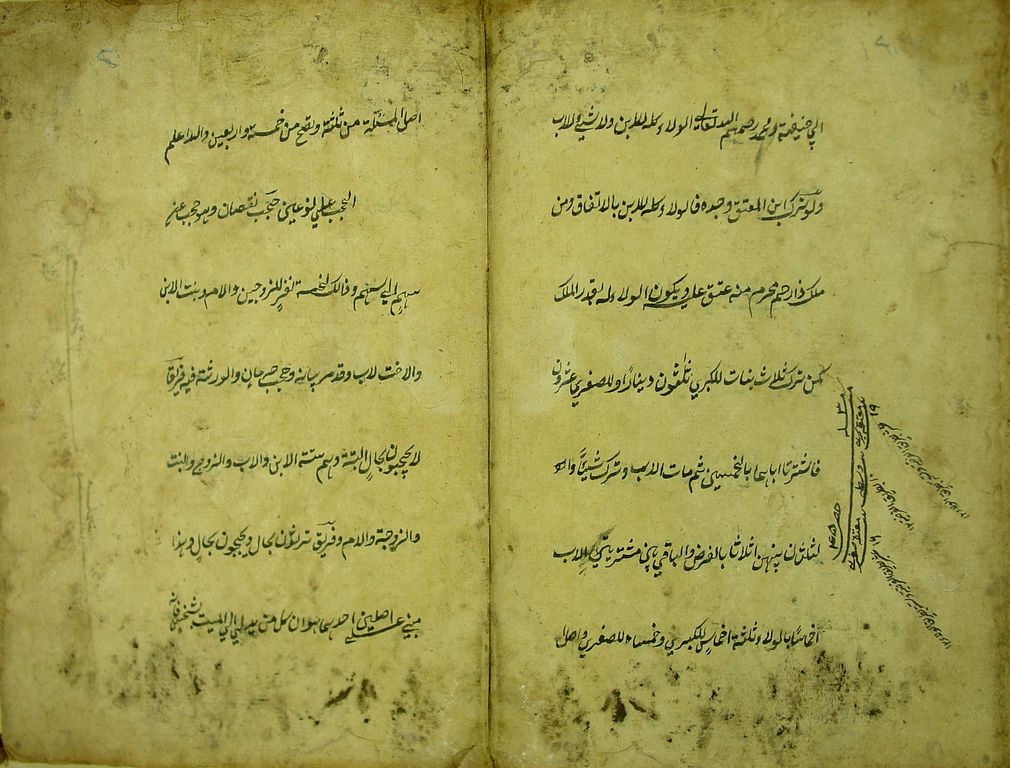 ابي حنيفة ومحمد رحمهم الله تعالى الولاء كله للابن ولا شيء للاب
ولو ترك ابن المعتق وجده فالولاء كله للابن بالاتفاق ومن
ملك ذا رحم محرم منه عتق عليه ويكون الولاء له بقدر الملك
كمن ترك ثلاث بنات للكبرى ثلثون دينارا وللصغرى عشرون
فاشتريا اباهما بالخمسين ثم مات الاب وترك شيئا
بينهن اثلاثا بالفرض والباقي بين مشتريتي الاب
اخماسا بالولاء ثلثة اخماس للكبرى وخمساه للصغرى واصل
اصل المسئلة من ثلثة وتصح من خمسة واربعين والله اعلم
الحجب على نوعين حجب نقصان وهو حجب عن
سهم الى سهم وذالك لخمسة نفر للزوجين والام وبنت الابن
والاخت لاب وقد مر بيانه وحجب حرمان والورثة فيه فريقان
لا يحجبون بحال البتة وهم ستة الابن والاب والزوج والبنت
والزوجة والام وفريق يرثون بحال ويحجبون بحال وهذا
مبني على اصلين احدهما هو ان كل من يدلي الى الميت بشخص